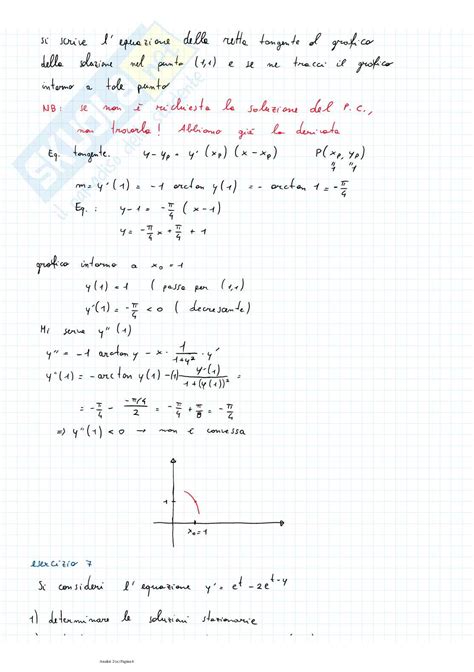 si scrive l'equazione della retta tangente al grafico
della soluzione nel punto (1,1) e se ne tracci il grafico
intorno a tale punto
NB: se non è richiesta la soluzione del P.C.,
non trovarla! Abbiamo già la derivata
Eq. tangente: y-yp = y'(xp)(x-xp) P(xp, yp)
"1 "1
m = y'(1) = -1 arctan y(1) = - arctan 1 = -π/4
Eq.: y-1 = -π/4 (x-1)
y = -π/4 x + π/4 + 1
grafico intorno a x0 = 1
y(1) = 1 (passa per (1,1)
y'(1) = -π/4 < 0 (decrescente)
Mi serve y''(1)
y'' = -1 arctan y - x · 1/(1+y²) · y'
y''(1) = - arctan y(1) - (1) y'(1)/(1+(y(1))²) =
= -π/4 - (-π/4)/2 = -π/4 + π/8 = -π/8
=> y''(1) < 0 → non è convessa
1
x0=1
esercizio 7
Si consideri l'equazione y' = e^t - 2e^(t-y)
1) determinare le soluzioni stazionarie